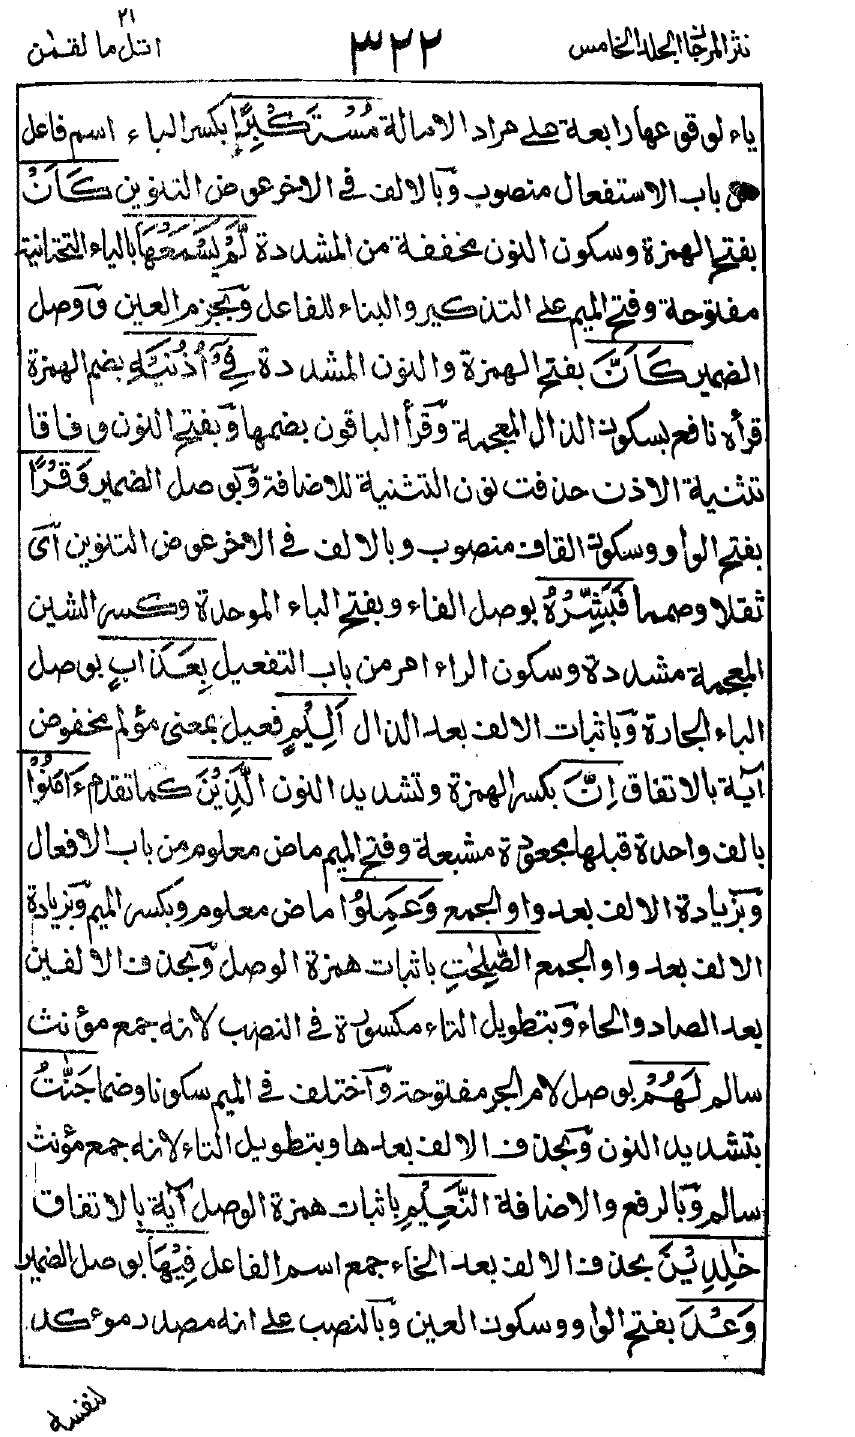 نثر المرجان الجلد الخامس ٣٢٢ اتل ما لقمٰن ٢١
ياء لوقوعها رابعة على مراد الامالة مُسْتَكْبِرًا بكسر الباء اسم فاعل
من باب الاستفعال منصوب وبالالف في الاخر عوض التنوين كَاَنْ
بفتح الهمزة وسكون النون مخففة من المشددة لَّمْ يَسْمَعْهَا بالياء التحتانية
مفتوحة وفتح الميم على التذكير والبناء للفاعل وبجزم العين ووصل
الضمير كَاَنَّ بفتح الهمزة والنون المشددة فِيْٓ اُذُنَيْهِ بضم الهمزة
قرأه نافع بسكون الذال المعجمة وقرأ الباقون بضمها وبفتح النون وفاقا
تثنية الاذن حذفت نون التثنية للاضافة وبوصل الضمير وَقْرًا
بفتح الواو وسكون القاف منصوب وبالالف في الاخر عوض التنوين أى
ثقلا وصمما فَبَشِّرْهُ بوصل الفاء وبفتح الباء الموحدة وكسر الشين
المعجمة مشددة وسكون الراء امر من باب التفعيل بِعَذَابٍ بوصل
الباء الجارة وباثبات الالف بعد الذال اَلِيْمٍ فعيل بمعنى مؤلم مخفوض
آية بالاتفاق اِنَّ بكسر الهمزة وتشديد النون الَّذِيْنَ كما تقدم ءَامَنُوْا
بالف واحدة قبلها مجعودة مشبعة وفتح الميم ماض معلوم من باب الافعال
وبزيادة الالف بعد واو الجمع وَعَمِلُوْا ماض معلوم وبكسر الميم وبزيادة
الالف بعد واو الجمع الصّٰلِحٰتِ باثبات همزة الوصل وبحذف الالفين
بعد الصاد والحاء وبتطويل التاء مكسورة في النصب لانه جمع مؤنث
سالم لَهُمْ بوصل لام الجر مفتوحة واختلف في الميم سكونا وضما جَنّٰتُ
بتشديد النون وبحذف الالف بعدها وبتطويل التاء لانه جمع مؤنث
سالم وبالرفع والاضافة النَّعِيْمِ باثبات همزة الوصل آية بالاتفاق
خٰلِدِيْنَ بحذف الالف بعد الخاء جمع اسم الفاعل فِيْهَا بوصل الضمير
وَعْدَ بفتح الواو وسكون العين وبالنصب على انه مصدر موءكد
لنفسه